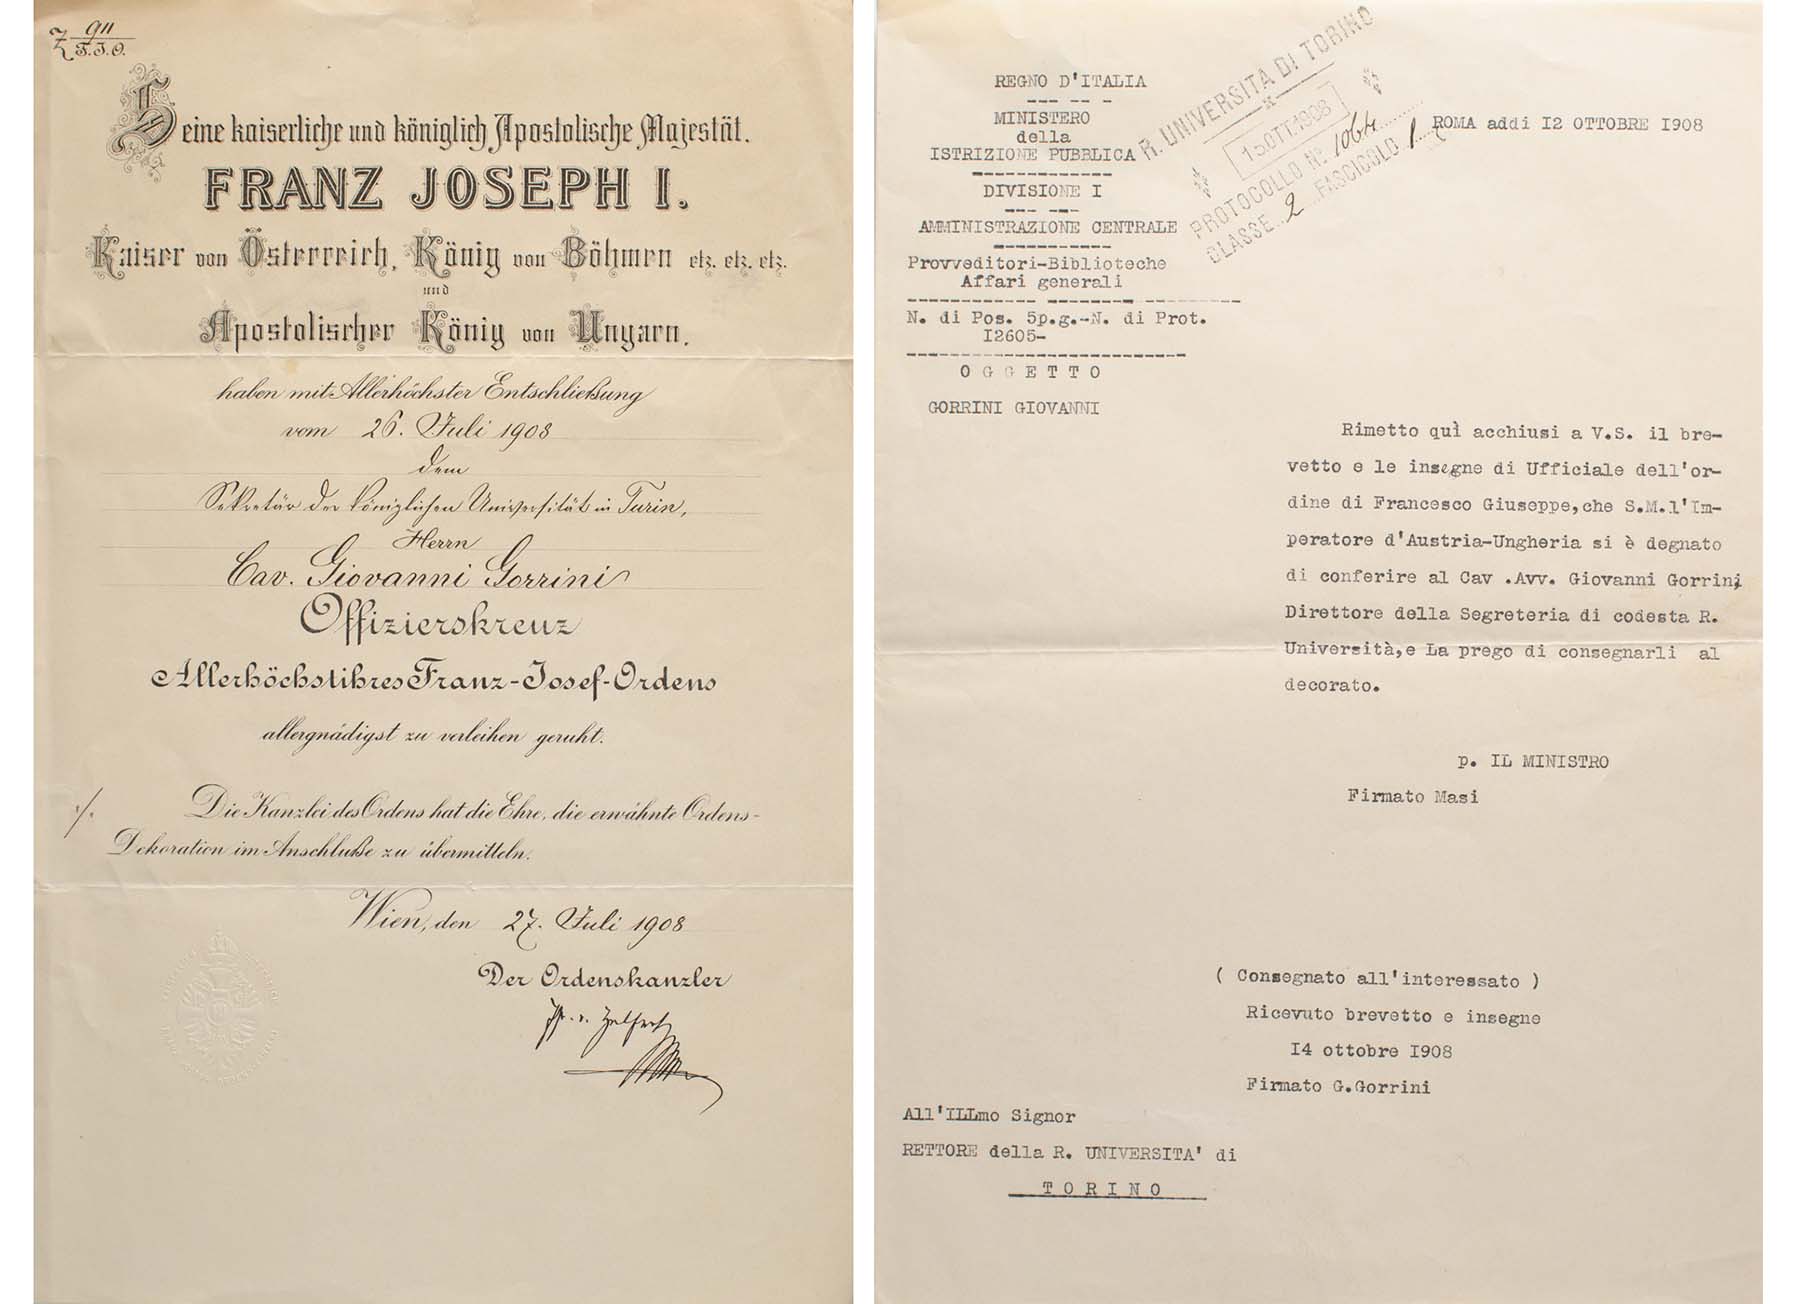 Z 911
F.J.O.
Seine kaiserliche und königlich Apostolische Majestät.
FRANZ JOSEPH I.
Kaiser von Österreich, König von Böhmen etz. etz. etz.
und
Apostolischer König von Ungarn.
haben mit Allerhöchster Entschließung
vom 26. Juli 1908
dem
Sekretär der königlichen Universität in Turin,
Herrn
Cav. Giovanni Gorrini
Offizierskreuz
Allerhöchstihres Franz-Josef-Ordens
allergnädigst zu verleihen geruht.
./.
Die Kanzlei des Ordens hat die Ehre, die erwähnte Ordens-
Dekoration im Anschluße zu übermitteln.
Wien, den 27. Juli 1908
Der Ordenskanzler
REGNO D'ITALIA
MINISTERO
della
ISTRIZIONE PUBBLICA
DIVISIONE I
AMMINISTRAZIONE CENTRALE
Provveditori-Biblioteche
Affari generali
N. di Pos. 5p.g.-N. di Prot.
I2605-
OGGETTO
GORRINI GIOVANNI
R. UNIVERSITA DI TORINO
15.OTT.1908
PROTOCOLLO No. 1064
CLASSE 2 FASCICOLO 1
ROMA addi I2 OTTOBRE I908
Rimetto quì acchiusi a V.S. il bre-
vetto e le insegne di Ufficiale dell'or-
dine di Francesco Giuseppe,che S.M.l'Im-
peratore d'Austria-Ungheria si è degnato
di conferire al Cav .Avv. Giovanni Gorrini
Direttore della Segreteria di codesta R.
Università,e La prego di consegnarli al
decorato.
p. IL MINISTRO
Firmato Masi
( Consegnato all'interessato )
Ricevuto brevetto e insegne
I4 ottobre I908
Firmato G.Gorrini
All'ILLmo Signor
RETTORE della R. UNIVERSITA' di
TORINO